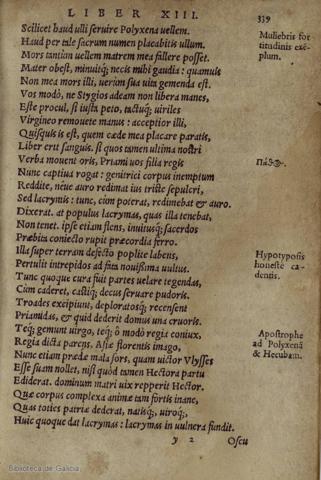 LIBER XIII.
339
Scilicet haud ulli seruire Polyxena uellem.
Haud per tale sacrum numen placabitis ullum.
Mors tantùm uellem matrem mea fallere posset.
Mater obest, minuitq; necis mihi gaudia: quamuis
Non mea mors illi, uerùm sua uita gemenda est.
Vos modò, ne Stygios adeam non libera manes,
Este procul, si iusta peto, tactuq; uiriles
Virgineo remouete manus: acceptior illi,
Quisquis is est, quem cæde mea placare paratis,
Liber erit sanguis. si quos tamen ultima nostri
Verba mouent oris, Priami uos filia regis
Nunc captiua rogat: genitrici corpus inemptum
Reddite, neue auro redimat ius triste sepulcri,
Sed lacrymis: tunc, cùm poterat, redimebat & auro.
Dixerat. at populus lacrymas, quas illa tenebat,
Non tenet. ipse etiam flens, inuitusq; sacerdos
Præbita coniecto rupit præcordia ferro.
Illa super terram defecto poplite labens,
Pertulit intrepidos ad fata nouissima uultus.
Tunc quoque cura fuit partes uelare tegendas,
Cùm caderet, castiq; decus seruare pudoris.
Troades excipiunt, deploratosq; recensent
Priamidas, & quid dederit domus una cruoris.
Teq; gemunt uirgo, teq; ô modò regia coniux,
Regia dicta parens, Asiæ florentis imago,
Nunc etiam prædæ mala sors, quam uictor Vlysses
Esse suam nollet, nisi quòd tamen Hectora partu
Ediderat. dominum matri uix repperit Hector.
Quæ corpus complexa animæ tam fortis inane,
Quas toties patriæ dederat, natisq;, uiroq;,
Huic quoque dat lacrymas: lacrymas in uulnera fundit.
y 2
Oscu
Muliebris for
titudinis exẽ-
plum.
Hypotyposis
honestè ca-
dentis.
Apostrophe
ad Polyxenã
& Hecubam.
Biblioteca de Galicia